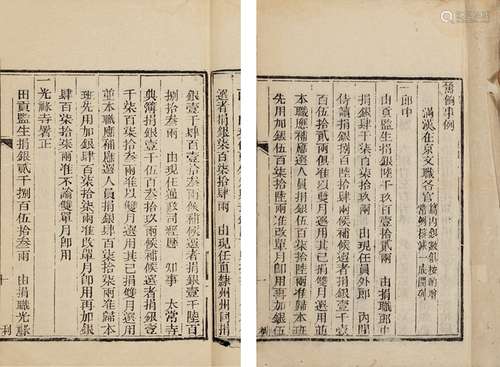 籌餉事例
滿漢在京文職各官
一郎中
由貢監生捐銀陸千玖百壹拾貳兩 由捐職郎中
捐銀 拾玖兩 由現任員外郎 內閣
侍讀捐銀捌百陸拾肆兩候補候選者捐銀壹千壹
百伍拾貳兩俱准以雙月選用其已捐雙月選用並
本職應補應選人員捐銀伍百柒拾陸兩准歸本班
先用加銀伍百柒拾陸兩准改單月即用再加銀伍
利
選者捐銀柒百柒拾肆兩 由現任直隸州州同捐
銀壹千肆百壹拾叁兩候補候選者捐銀千陸百
捌拾叁兩 由現任通政司經歷 知事 太常寺
典簿捐銀壹千伍百叁拾玖兩候補候選者捐銀壹
千柒百壹拾兩俱准以雙月選用其已捐雙月選用
並本職應補應選人員捐銀肆百柒拾柒兩准歸本
班先用加銀肆百柒拾柒兩准改單月即用再加銀
肆百柒拾柒兩准不論雙單月即用
一光祿寺署正
田貢監生捐銀貳千捌百伍拾叁兩 由捐職光祿
十 利